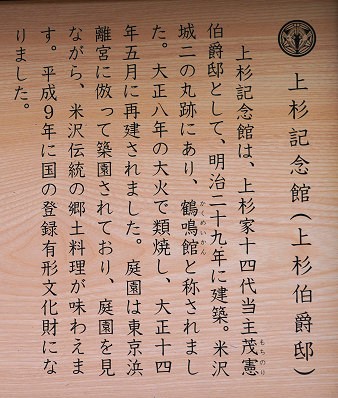 上杉記念館(上杉伯爵邸)
上杉記念館は、上杉家十四代当主茂憲
もちのり
伯爵邸として、明治二十九年に建築。米沢
城二の丸跡にあり、鶴鳴館と称されまし
かくめいかん
た。大正八年の大火で類焼し、大正十四
年五月に再建されました。庭園は東京浜
離宮に倣って築園されており、庭園を見
ながら、米沢伝統の郷土料理が味わえま
す。平成9年に国の登録有形文化財にな
りました。